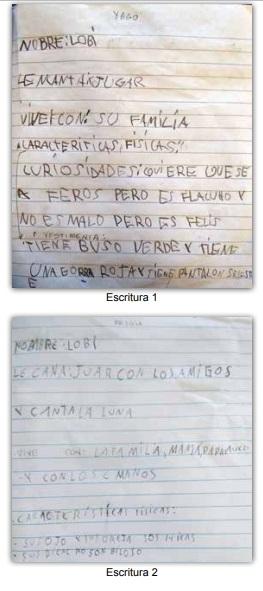 YAGO
NOBRE:LOBÍ
LE MANTA:JUGAR
VIVE:CON: SU FAMILIA
CARACTERITICAS;FÍSICAS;
CURIOSIDADES: QUIERE QUE SE
A FEROS PERO ES FLACUHO Y
NO ES MALO PERO ES FELIS
Y VESTIMENTA:
TIENE BUSO VERDE Y TIENE
UNA GORRA ROJA Y TIENE PANTALON
E
Escritura 1
NOMBRE:LOBÍ
LE CANA:JUAR CON LOS AMIGOS
Y CANTALA LUNA
VIVE CON: LA FAMILA, MAMÁ,
Y CON LOS
CARACTERÍSTICAS FÍSICAS:
SU OJO Y
SUS NO SON
Escritura 2